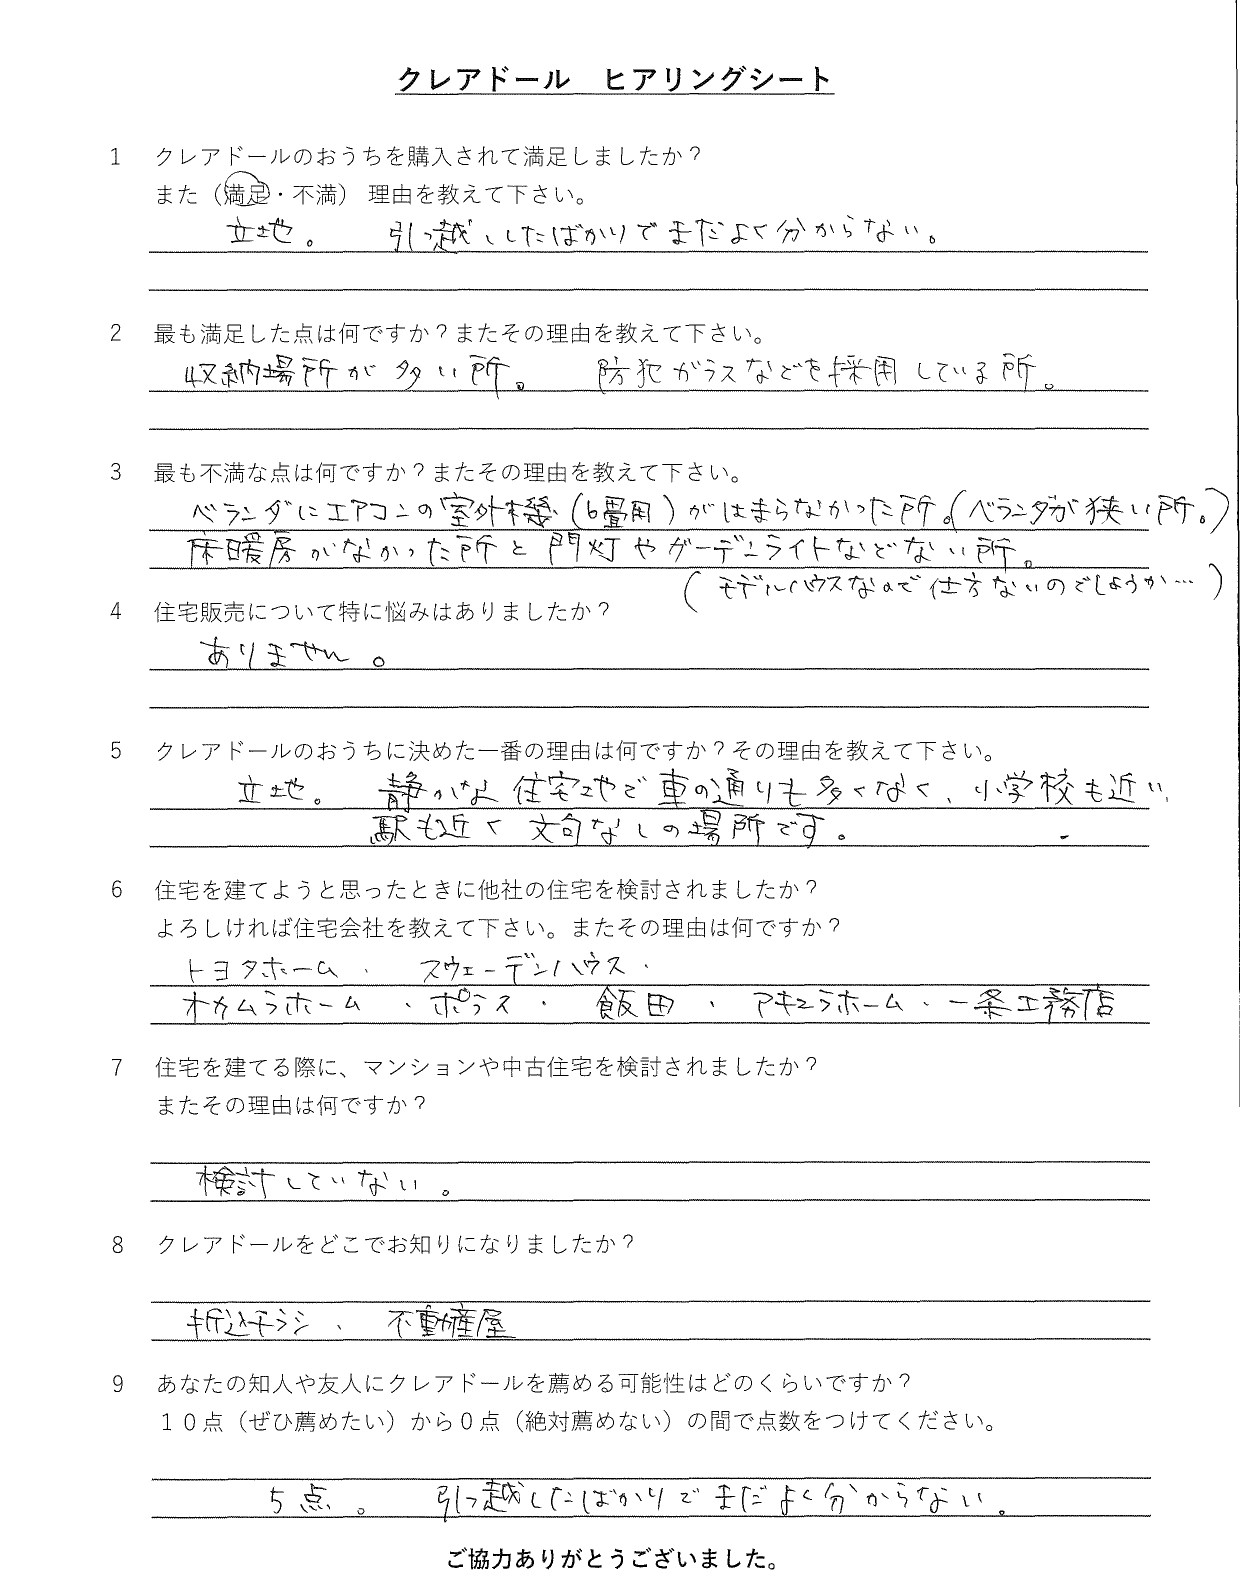 クレアドール　ヒアリングシート
1　クレアドールのおうちを購入されて満足しましたか？
また（満足・不満） 理由を教えて下さい。
立地。　引っ越ししたばかりでまだよく分からない。
2　最も満足した点は何ですか？またその理由を教えて下さい。
収納場所が多い所。　防犯ガラスなどを採用している所。
3　最も不満な点は何ですか？またその理由を教えて下さい。
ベランダにエアコンの室外機（6畳用）がはまらなかった所。（ベランダが狭い所。）
床暖房がなかった所と門灯やガーデンライトなどない所。
（モデルハウスなので仕方ないのでしょうか…）
4　住宅販売について特に悩みはありましたか？
ありません。
5　クレアドールのおうちに決めた一番の理由は何ですか？その理由を教えて下さい。
立地。　静かな住宅地で車の通りも多くなく、小学校も近い、
駅も近く文句なしの場所です。
6　住宅を建てようと思ったときに他社の住宅を検討されましたか？
よろしければ住宅会社を教えて下さい。またその理由は何ですか？
トヨタホーム・　スウェーデンハウス・
オカムラホーム・ポラス・飯田・アキュラホーム・一条工務店
7　住宅を建てる際に、マンションや中古住宅を検討されましたか？
またその理由は何ですか？
検討していない。
8　クレアドールをどこでお知りになりましたか？
折込チラシ、　不動産屋
9　あなたの知人や友人にクレアドールを薦める可能性はどのくらいですか？
１０点（ぜひ薦めたい）から０点（絶対薦めない）の間で点数をつけてください。
5点。　引っ越したばかりでまだよく分からない。
ご協力ありがとうございました。